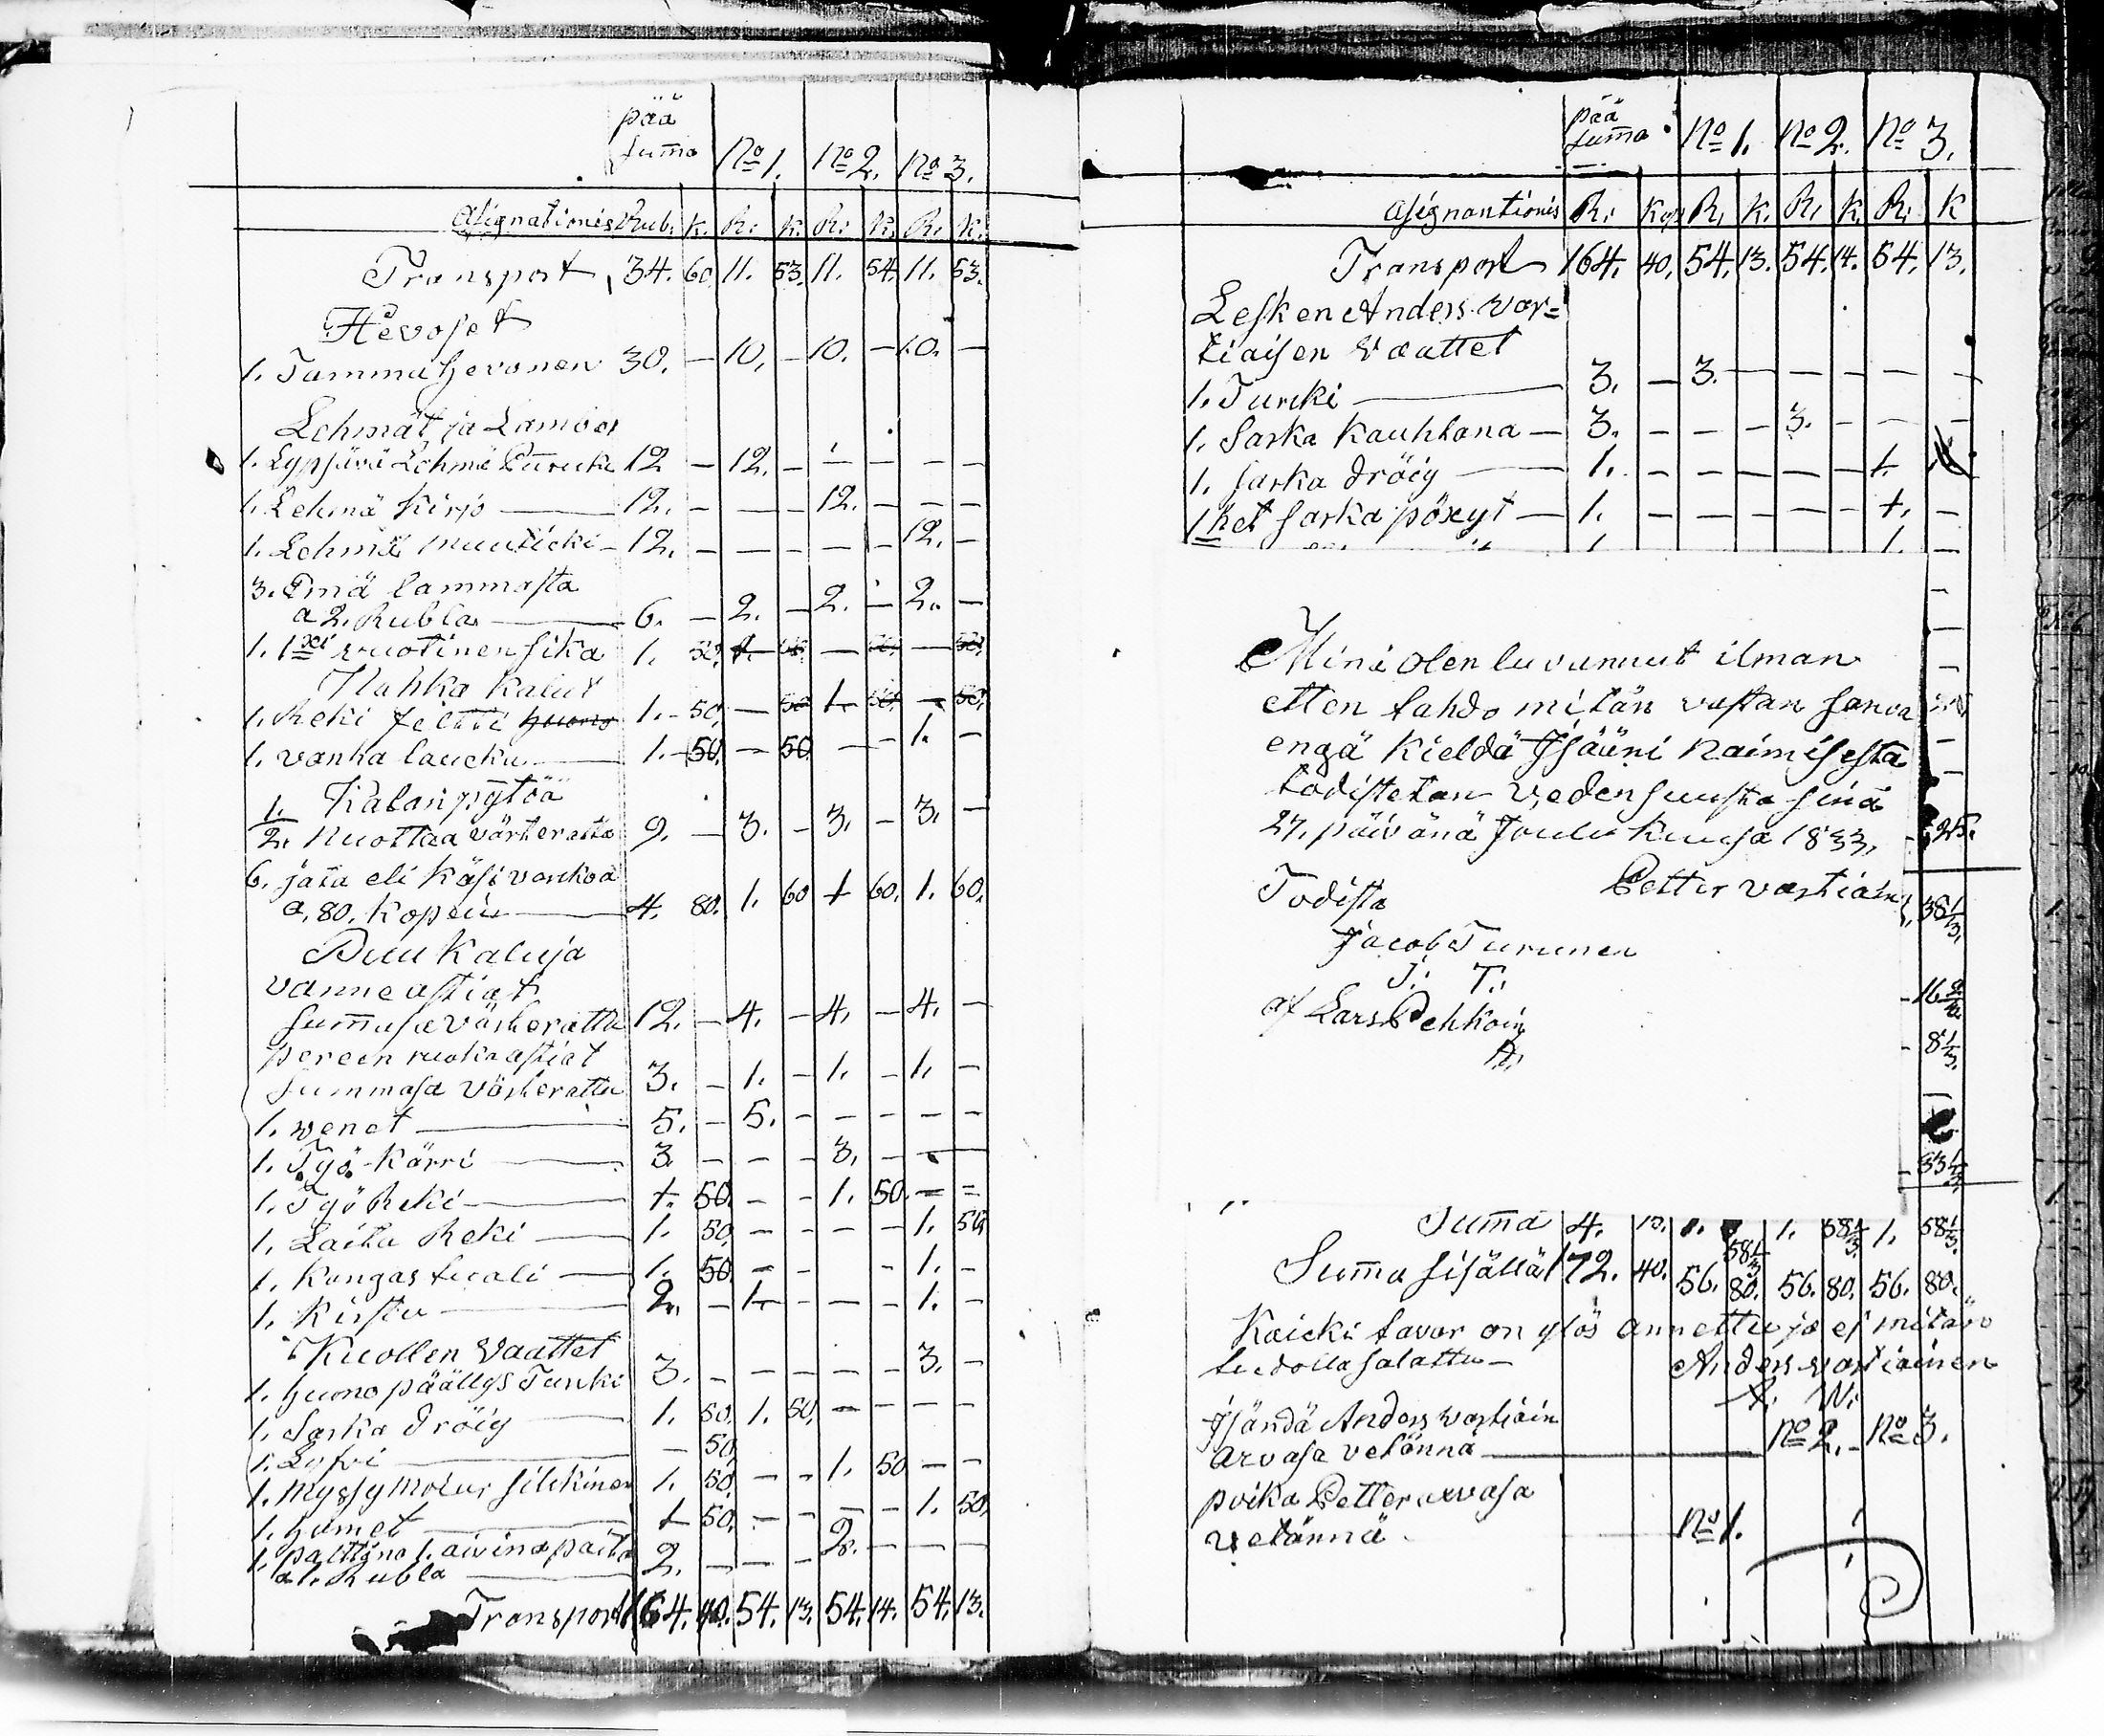 pää
summa No 1. No 2. No 3.
Asignationis Rub. K. R. K. R. K. R. K.
Transport 34. 60. 11. 53. 11. 54. 11. 53.
Hevoset
1. Tamma hevonen 30. — 10. — 10. — 10. —
Lehmät ja Lambat
1. Lypsävä Lehmä 12 — 12. — — — — —
1. Lehmä Kirjo 12. — — — 12. — — —
1. Lehmä Muuticki 12. — — — — — 12. —
3. Emä lammasta
a 2. Rubla 6. — 2. — 2. — 2. —
1. 1xi vuotinen sika 1. 50.
Nahka Kalut
1. Reki 1. 50.
1. vanha laucku 1. 50. — 50 — — 1. —
Kalanpytöä
1/2. Nuottaa värkerattu 9. — 3. — 3. — 3. —
6. jasa eli Käsi verckoa
a, 80. Kopein 4. 80. 1. 60 1 60. 1. 60.
Puu Kaluja
vanne astiat
summasa värkerattu 12. — 4. — 4. — 4. —
pereen ruoka astiat
summasa värkerattu 3. — 1. — 1. — 1. —
1. venet 5. — 5. — — — — —
1. Työ Kärri 3. — — — 3. — — —
1. Työ Reki 1. 50. — — 1. 50. — —
1. Laita Reki 1. 50. — — — — 1. 50.
1. Kangas tuoli 1. 50. — — — 1. —
1. Kirstu 2. — 1 — — — 1. —
Kuollen Vaattet
1. huono päällys Turcki 3. — — — — — 3. —
1. Sarka dröig 1. 50. 1. 50. — — — —
1. — 50.
1. Myssy silckinen 1. 50. — — 1. 50 — —
1. hamet 1 50. — — — — 1. 50.
1. palttina 1. aivina paita
a 1. Rubla 2. — — — 2. — — —
Transport 164. 40. 54. 13. 54. 14. 54. 13.
pää
summa No 1. No 2. No 3.
Asignantionis R. Kop R. K. R. K. R. K
Transport 164. 40. 54. 13. 54. 14. 54. 13.
Lesken Anders Var=
tiaisen Vaattet
1. Turcki 3. — 3. — — — — —
1. Sarka Kauhtana — 3. — — — 3. — — —
1. Sarka dröig 1. — — — — — 1.
1het Sarka pöxyt — 1. — — — — — 1. —
Minä olen luvannut ilman
etten tahdo mitän vastan sanoa
engä Kieldä Isääni Naimisesta
todistetan Vedensuusta sinä
27. päivänä Joulu Kuusa 1833.
Petter Vartiain
Todista
Jacob Turunen
J. T.
af Lars Pehkoin
25.
38 1/3.
16 2/3.
8 1/3.
33 1/3.
Summa 4. 1. 58 1/3. 1. 58 1/3. 1. 58 1/3.
Summa sisällä 172. 40. 56. 80. 56. 80. 56. 80.
Kaicki tavar on ylös annettu ja ej mitän
tiedolla salattu — Anders Vartiainen
A. W.
Isändä Anders Vartiain
arvasa vetännä No 2. — No 3.
poika Petter arvasa
vetännä No 1.